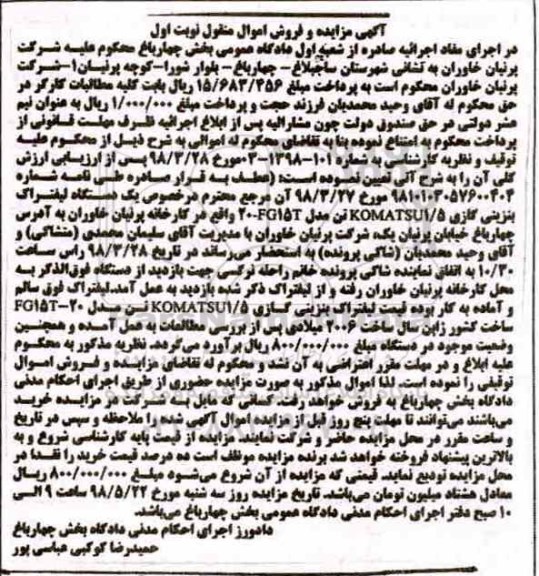 آگهی مزایده و فروش اموال منقول نوبت اول
در اجرای مفاد اجرائیه صادره از شعبه اول دادگاه عمومی بخش چهارباغ محکوم علیه شرکت
پرنیان خاوران به نشانی شهرستان ساوجبلاغ- چهارباغ- بلوار شورا-کوچه پرنیان۱-شرکت
پرنیان خاوران محکوم است به پرداخت مبلغ ۱۵/۶۸۳/۴۵۶ ریال بابت کلیه مطالبات کارگر در
حق محکوم له آقای وحید محمدیان فرزند حجت و پرداخت مبلغ ۱/۰۰۰/۰۰۰ ریال به عنوان نیم
عشر دولتی در حق صندوق دولت چون مشارالیه پس از ابلاغ اجرائیه ظرف مهلت قانونی از
پرداخت محکوم به امتناع نموده بنا به تقاضای محکوم له اموالی به شرح ذیل از محکوم علیه
توقیف و نظریه کارشناسی به شماره ۱۰۱-۱۳۹۸-۰۳مورخ ۹۸/۳/۲۸ پس از ارزیابی ارزش
کلی آن را به شرح آتی تعیین نموده است: (عطف به قرار صادره طی نامه شماره
۹۸۱۰۱۰۳۰۵۷۶۰۰۴۰۴ مورخ ۹۸/۳/۲۷ آن مرجع محترم درخصوص یک دستگاه لیفتراک
بنزینی گازی KOMATSU۱/۵ تن مدل FG۱۵T-۲۰ واقع در کارخانه پرنیان خاوران به آدرس
چهارباغ خیابان پرنیان یک، شرکت پرنیان خاوران با مدیریت آقای سلیمان محمدی (متشاکی) و
آقای وحید محمدیان (شاکی پرونده) به استحضار می‌رساند در تاریخ ۹۸/۳/۲۸ راس ساعت
۱۰/۳۰ به اتفاق نماینده شاکی پرونده خانم راحله نرگسی جهت بازدید از دستگاه فوق‌الذکر به
محل کارخانه پرنیان خاوران رفته و از لیفتراک ذکر شده بازدید به عمل آمد.لیفتراک فوق سالم
و آماده به کار بوده قیمت لیفتراک بنزینی گازی KOMATSU۱/۵ تن مدل FG۱۵T-۲۰
ساخت کشور ژاپن سال ساخت ۲۰۰۶ میلادی پس از بررسی مطالعات به عمل آمده و همچنین
وضعیت موجود در دستگاه مبلغ ۸۰۰/۰۰۰/۰۰۰ ریال برآورد می‌گردد. نظریه مذکور به محکوم
علیه ابلاغ و در مهلت مقرر اعتراضی به آن نشد و محکوم له تقاضای مزایده و فروش اموال
توقیفی را نموده است. لذا اموال مذکور به صورت مزایده حضوری از طریق اجرای احکام مدنی
دادگاه بخش چهارباغ به فروش خواهد رفت. کسانی که مایل به شرکت در مزایده خرید
می‌باشند می‌توانند تا مهلت پنج روز قبل از مزایده اموال آگهی شده را ملاحظه و سپس در تاریخ
و ساعت مقرر در محل مزایده حاضر و شرکت نمایند. مزایده از قیمت پایه کارشناسی شروع و به
بالاترین پیشنهاد فروخته خواهد شد برنده مزایده موظف است ده درصد قیمت خرید را نقدا در
محل مزایده تودیع نماید. قیمتی که مزایده از آن شروع می‌شود مبلغ ۸۰۰/۰۰۰/۰۰۰ ریال
معادل هشتاد میلیون تومان می‌باشد. تاریخ مزایده روز سه شنبه مورخ ۹۸/۵/۲۲ ساعت ۹ الی
۱۰ صبح دفتر اجرای احکام مدنی دادگاه عمومی بخش چهارباغ می‌باشد.
دادورز اجرای احکام مدنی دادگاه بخش چهارباغ
حمیدرضا کوکبی عباسی پور